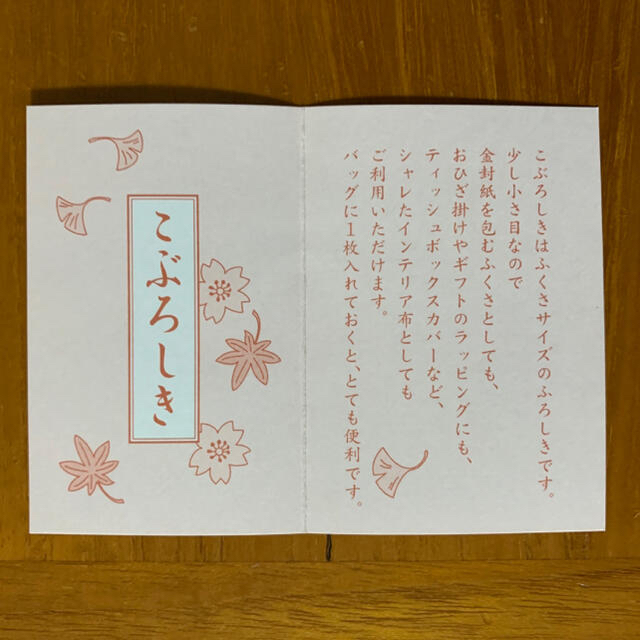 こぶろしき
こぶろしきはふくさサイズのふろしきです。
少し小さ目なので
金封紙を包むふくさとしても、
おひざ掛けやギフトのラッピングにも、
ティッシュボックスカバーなど、
シャレたインテリア布としても
ご利用いただけます。
バッグに1枚入れておくと、とても便利です。